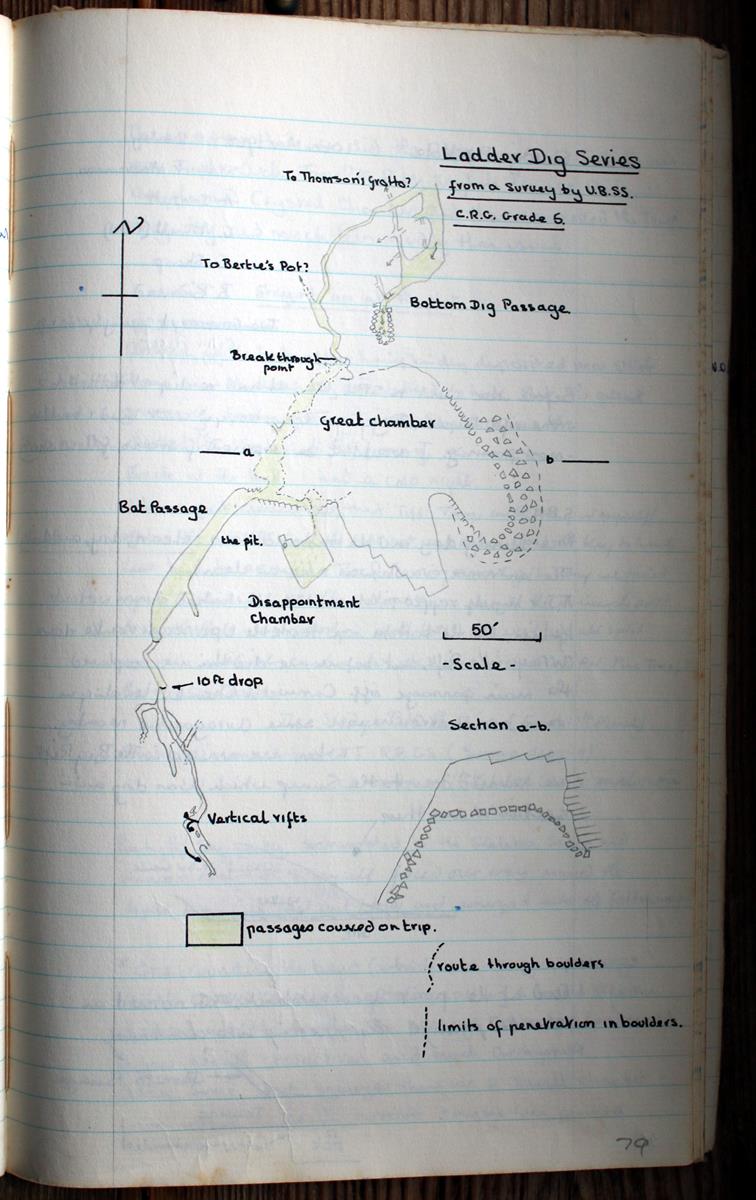 Ladder Dig Series
from a survey by U.B.S.S.
C.R.G. Grade 6.
To Thomson's Grotto?
N
To Bertie's Pot?
Bottom Dig Passage
Break through
point
Great chamber
a
b
Bat Passage
the pit.
Disappointment
chamber
50'
- Scale -
10 ft drop
Section a-b.
Vertical rifts
passages covered on trip.
route through boulders
limits of penetration in boulders.
79